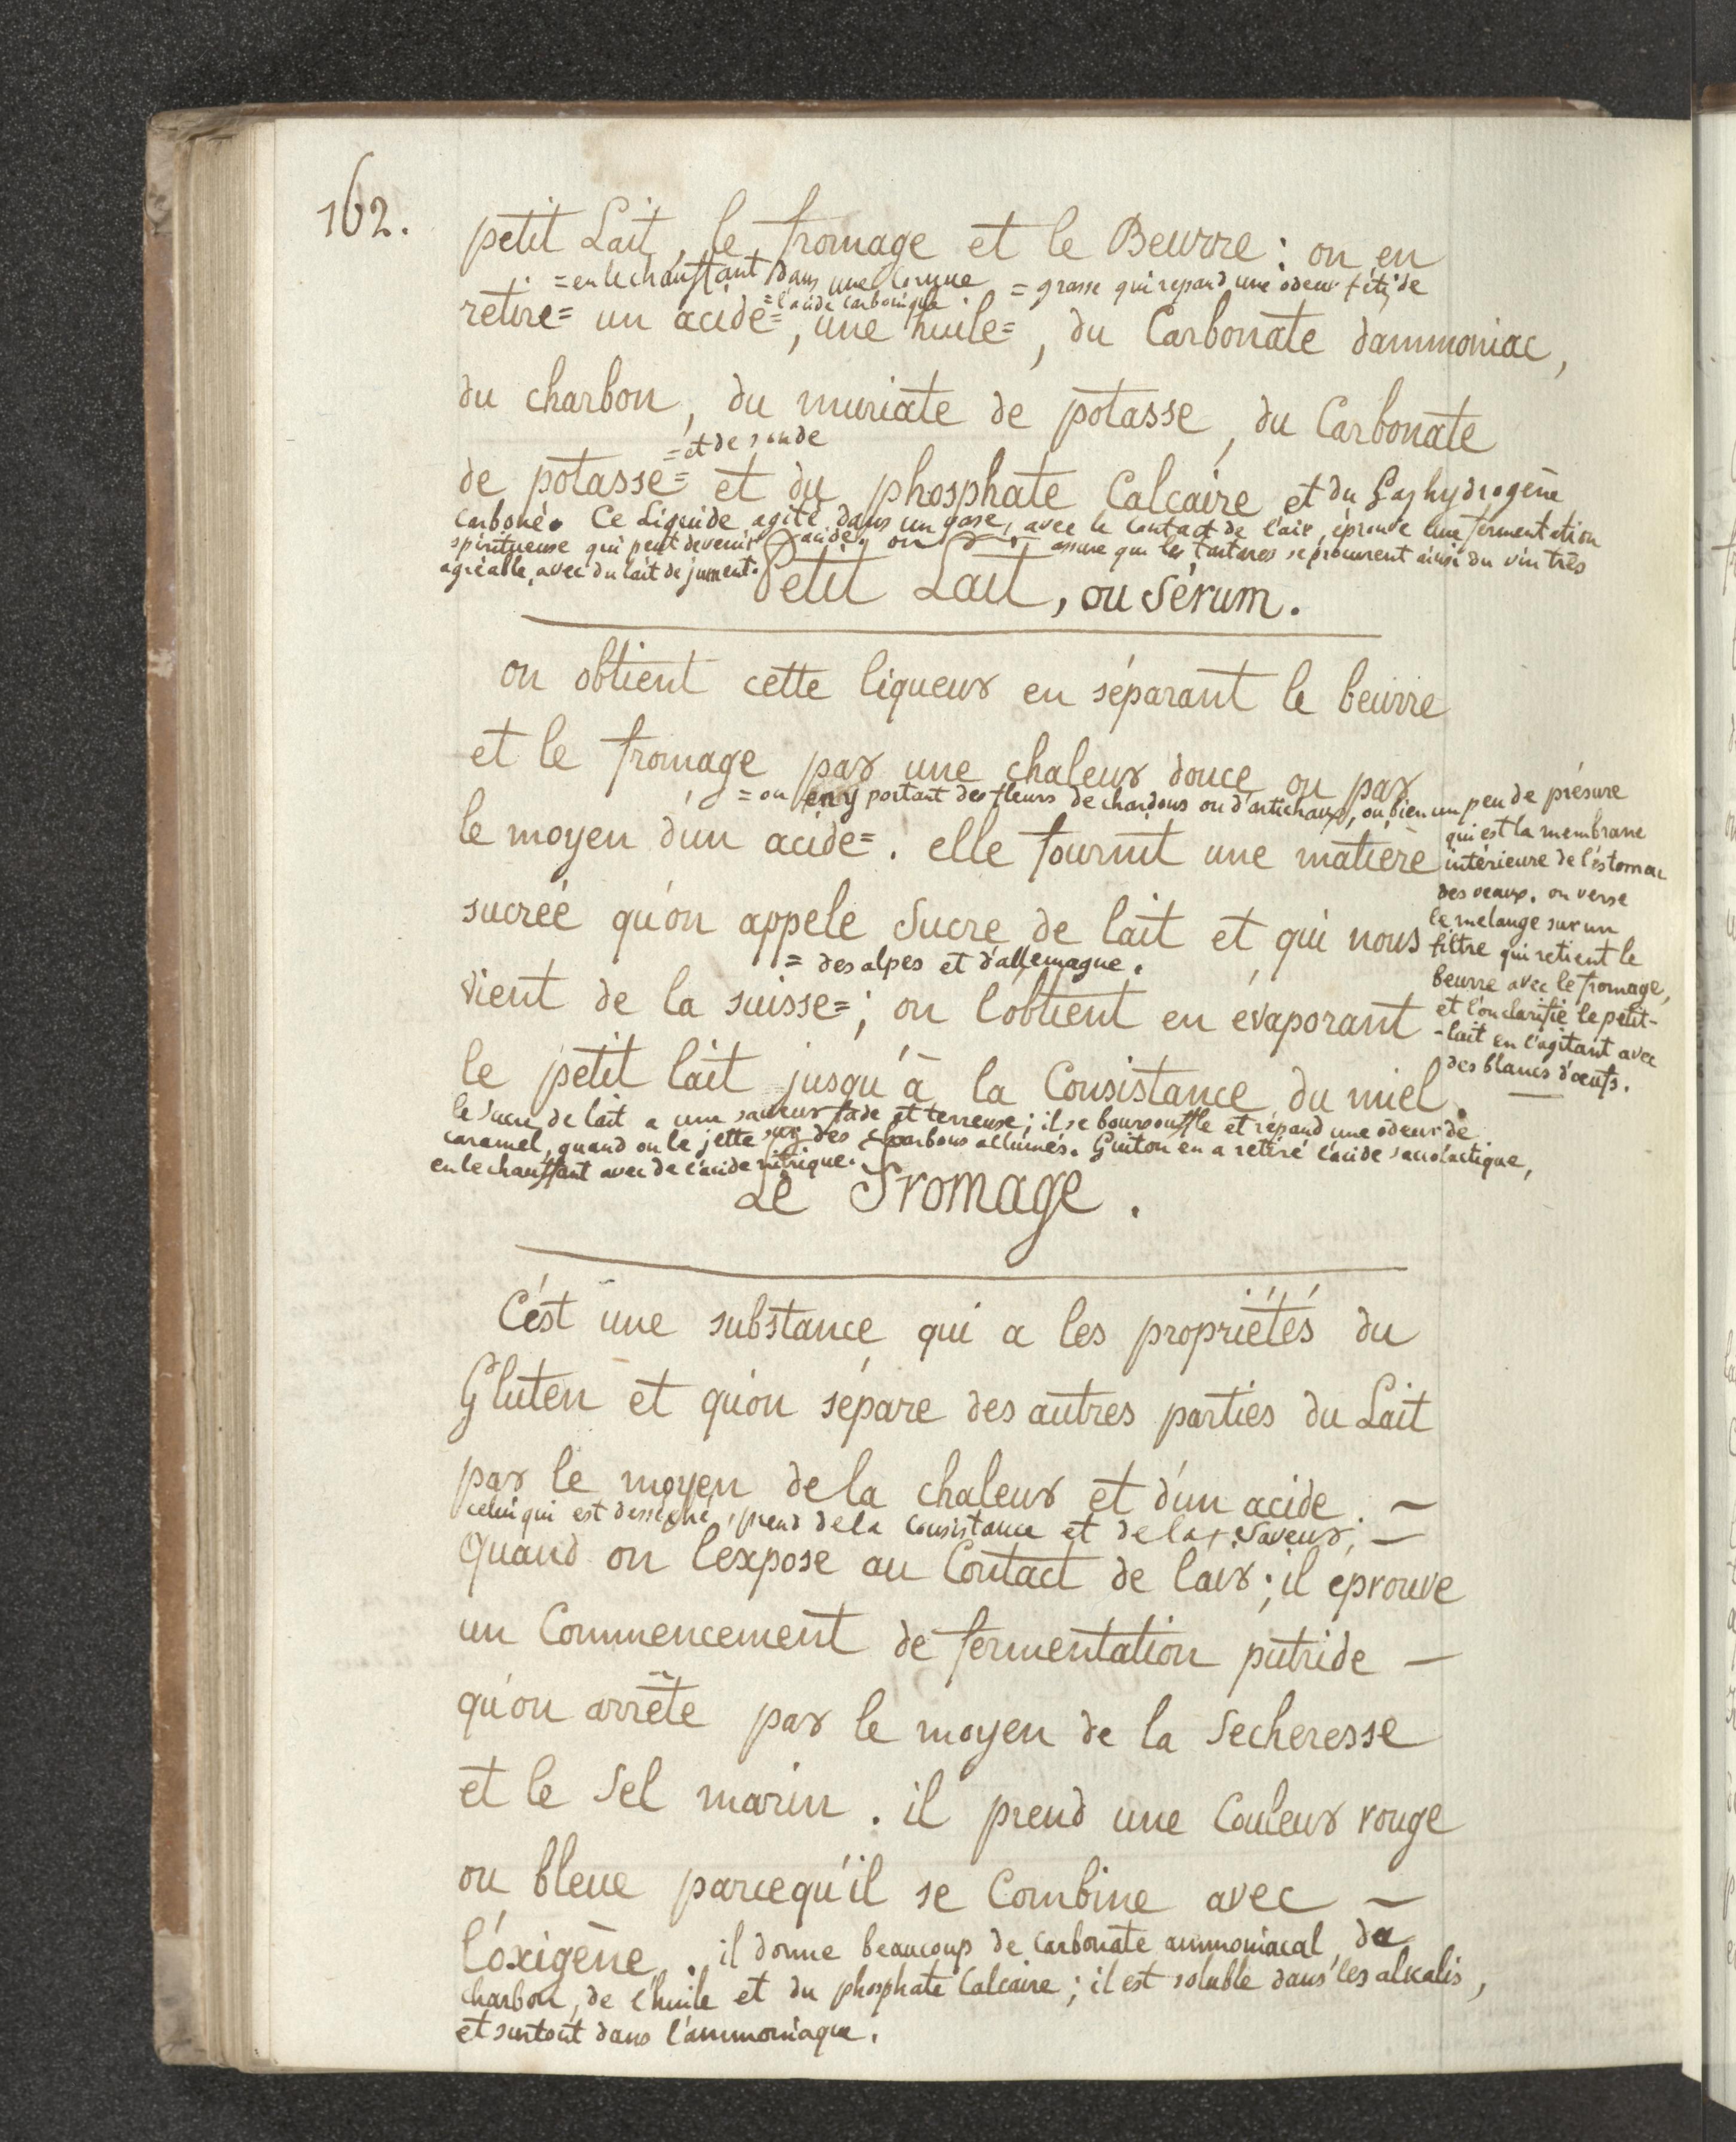 162.
petit Lait, le fromage et le Beurre : on en
= en le chauffant dans une Cornue = grasse qui repand une odeur fétide
= l'acide carbonique.
retire= un acide=, une huile=, du Carbonate dammoniac,
du charbon, du muriate de potasse, du Carbonate
= et de soude
de potasse= et du phosphate Calcaire et du Gaz hydrogène
carboné. Ce Liquide agité dans un vase, avec le contact de l'air, éprouve une fermentation
spiritueuse qui peut devenir acide. on assure que les tartares se procurent ainsi du vin très
agréable, avec du lait de jument.
Petit Lait, ou Sérum.
on obtient cette liqueur en séparant le beurre
et le fromage par une chaleur douce ou par
= ou en y portant des fleurs de chardons ou d'artichaux, ou bien un peu de présure
le moyen d'un acide=. elle fournit une matière
qui est la membrane
intérieure de l'éstomac
des veaux. on verse
le melange sur un
filtre qui retient le
beurre avec le fromage,
et l'on clarifie le petit-
-lait en l'agitant avec
des blancs d'œufs.
sucréé qu'on appele Sucre de lait et qui nous
= des alpes et d'allemagne.
vient de la suisse=; on l'obtient en évaporant
le petit lait jusqu'à la Consistance du miel.
le sucre de lait a une saveur fade et terreuse; il se boursouffle et répand une odeur de
caramel, quand on le jette sur des charbons allumés. Guiton en a retiré l'acide saccolactique,
en le chauffant avec de l'acide nitrique.
Le Fromage.
C'ést une substance qui a les propriétés du
Gluten et qu'on sépare des autres parties du Lait
par le moyen de la chaleur et d'un acide. ~
celui qui est desséché, prend de la consistance et de la saveur; —
Quand on l'expose au Contact de l'air; il éprouve
un Commencement de fermentation putride —
qu'on arrête par le moyen de la Secheresse
et le Sel marin. il prend une Couleur rouge
ou bleue parcequ'il se Combine avec ~
l'óxigène. il donne beaucoup de carbonate ammoniacal, du
charbon, de l'huile et du phosphate Calcaire; il est soluble dans les alkalis,
et surtout dans l'ammoniaque.